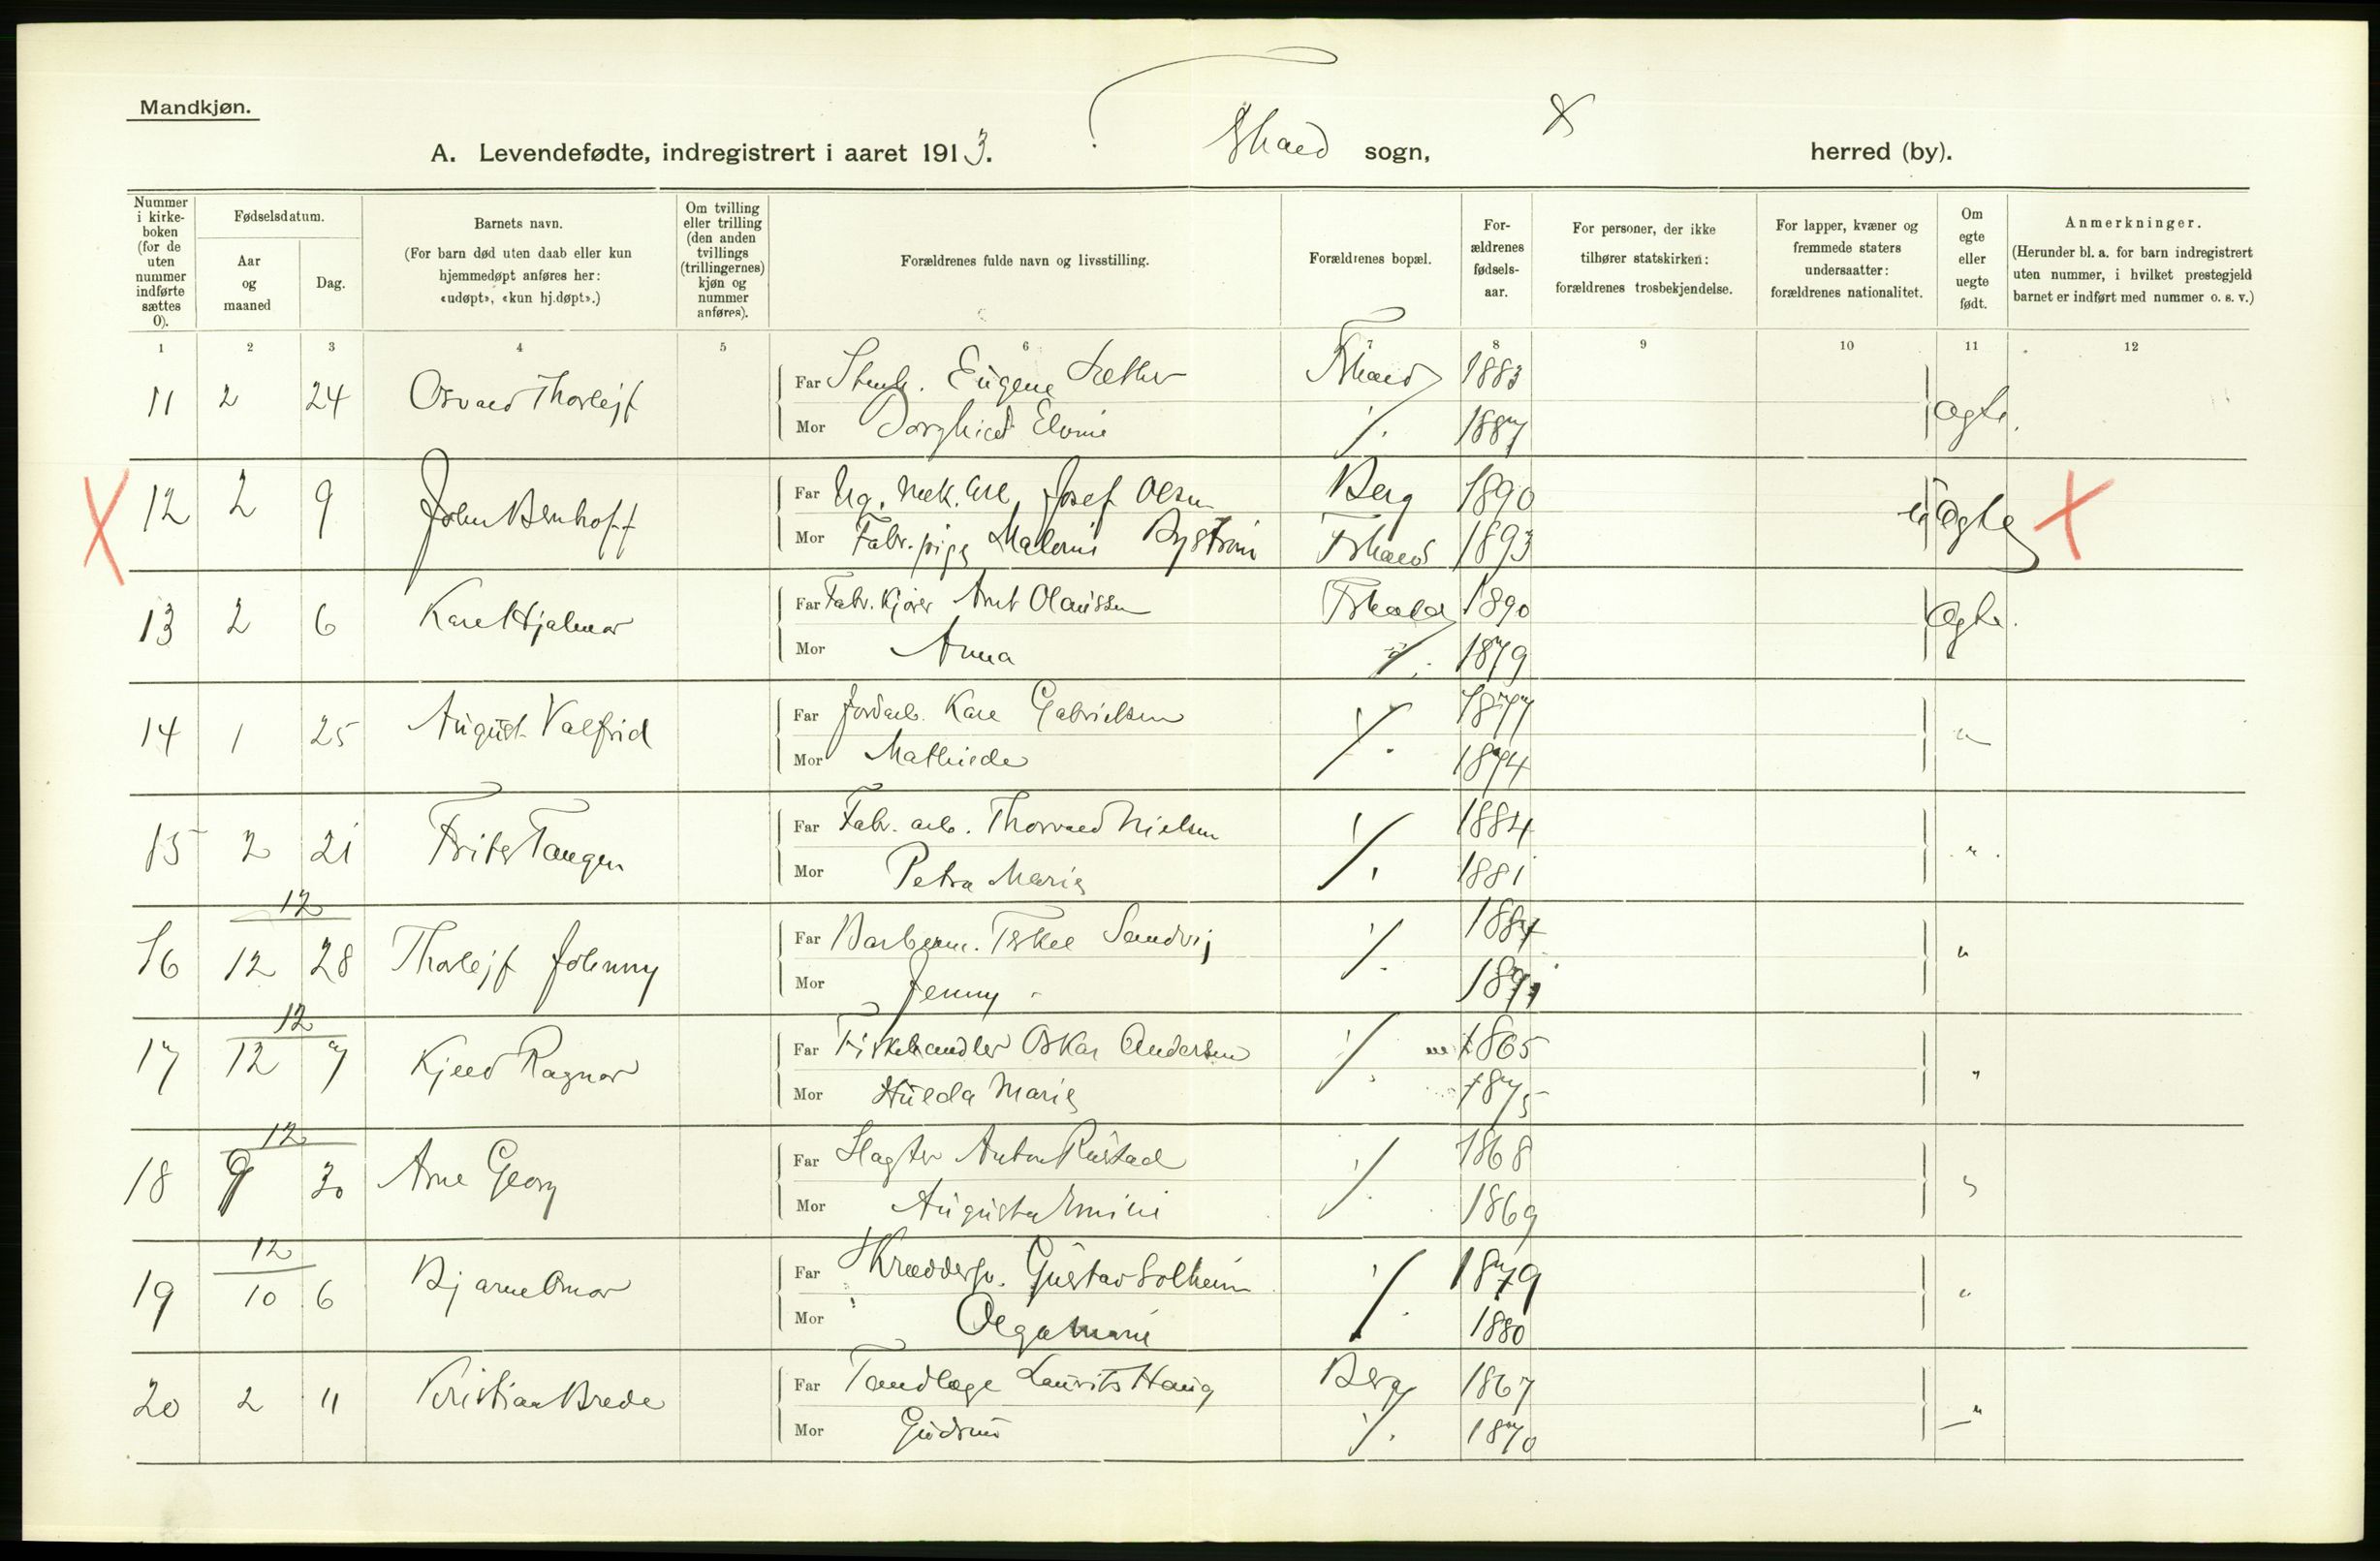 Mandkjøn.
A. Levendefødte, indregistrert i aaret 1913. Fhald sogn, herred (by).
Nummer i kirkeboken (for de uten nummer indførte sættes 0).
Fødselsdatum.
Aar og maaned
Dag.
Barnets navn.
(For barn død uten daab eller kun hjemmedøpt anføres her: «udøpt», «kun hj.døpt».)
Om tvilling eller trilling (den anden tvillings (trillingernes) kjøn og nummer anføres).
Forældrenes fulde navn og livsstilling.
Forældrenes bopæl.
Forældrenes fødselsaar.
For personer, der ikke tilhører statskirken: forældrenes trosbekjendelse.
For lapper, kvæner og fremmede staters undersaatter: forældrenes nationalitet.
Om egte eller uegte født.
Anmerkninger.
(Herunder bl. a. for barn indregistrert uten nummer, i hvilket prestegjeld barnet er indført med nummer o. s. v.)
1 2 3 4 5 6 7 8 9 10 11 12
11 2 24 Osvald Thorlejf Far Stenh. Eugene Sæther Fhald 1883 ægte.
Mor Borghild Elvine 1887
12 2 9 John Bernhoff Far Ug. mek. arb. Josef Olsen Berg 1890 uægte
Mor Fabr. pige Malene Byström Fhald 1893
13 2 6 Karl Hjalmar Far Fabr. kjører Arnt Olaussen Fhald 1890 ægte.
Mor Anna 1879
14 1 25 August Valfrid Far Jordarb. Karl Gabrielsen 1877 "
Mor Mathilde 1874
15 2 21 Frits Tangen Far Fabr. arb. Thorvald Nielsen 1884 "
Mor Petra Marie 1881
12
16 12 28 Thorlejf Johnny Far Barberm. Eskel Sandvig "
Mor Jenny
12
17 12 7 Kjell Ragnar Far Fiskehandler Oskar Andersen 1865 "
Mor Hulda Marie 1875
12
18 9 30 Arne Georg Far Slagter Anton Rustad 1868 "
Mor Augusta Emilie 1869
12
19 10 6 Bjarne Omar Far Skræddersv. Gustav Solheim 1879 "
Mor Olga Marie 1880
20 2 11 Kristian Brede Far Tandlæge Laurits Haug Berg 1867 "
Mor Gudrun 1870